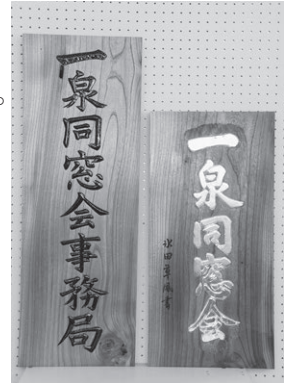 一泉同窓会事務局
一泉同窓会